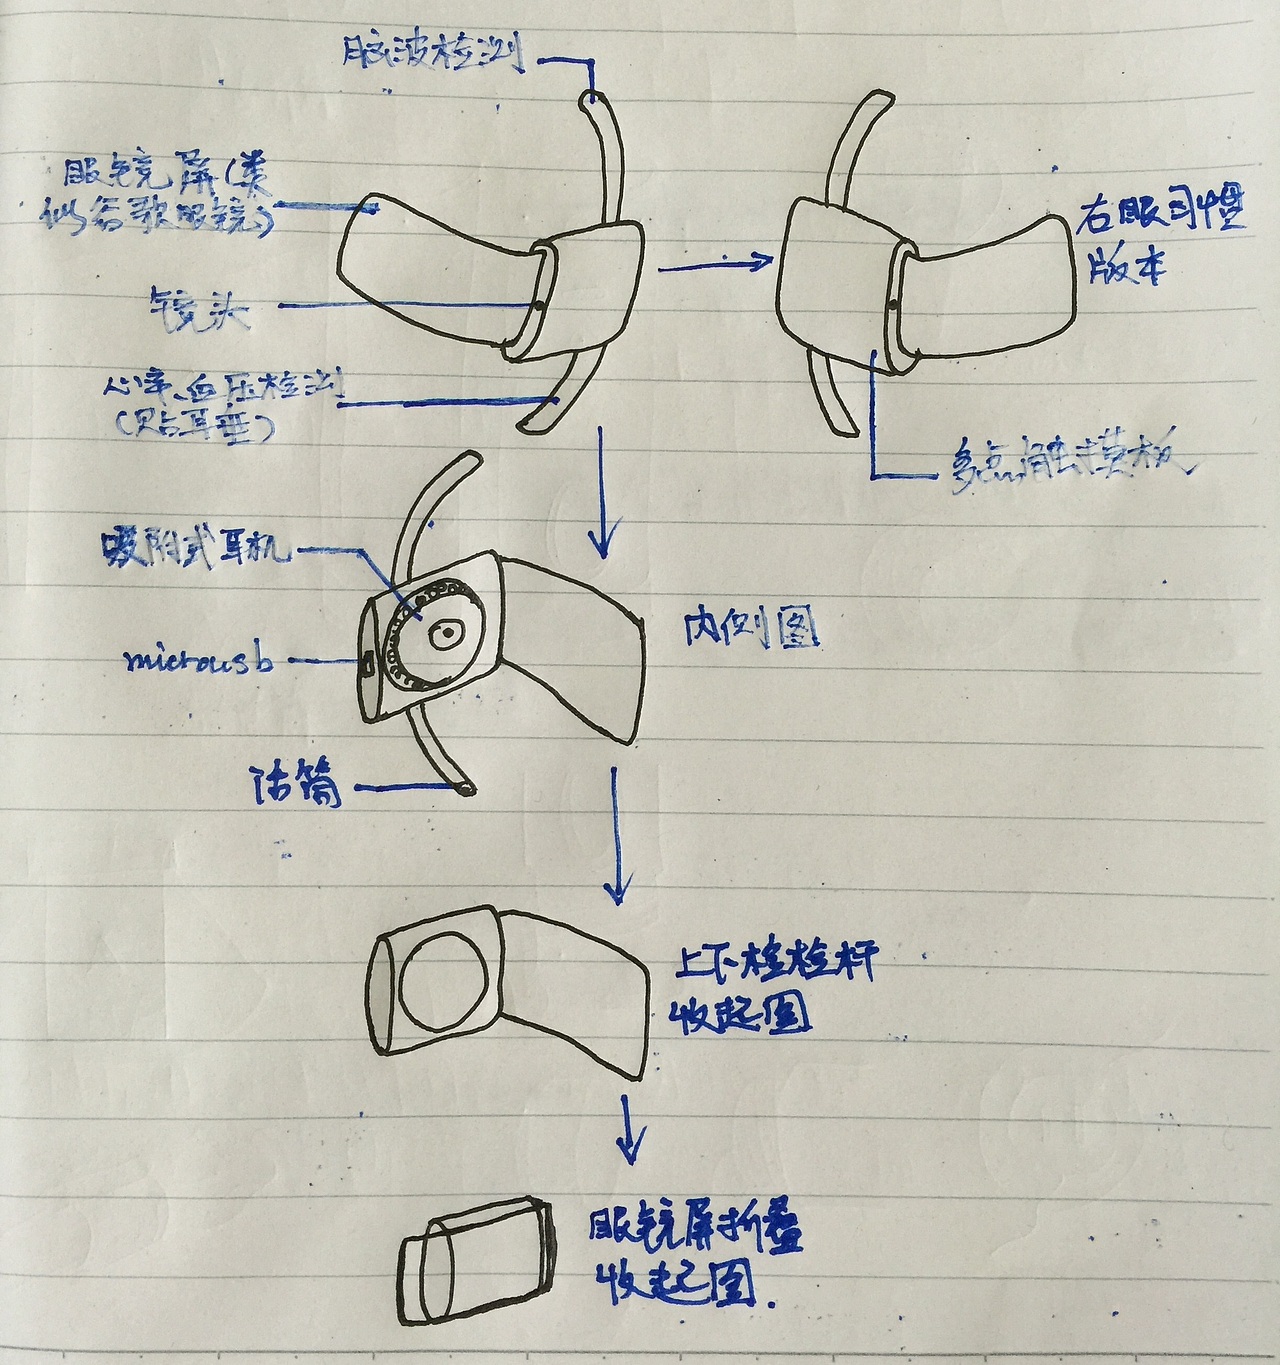 脉波检测
眼镜屏(类
似谷歌眼镜)
镜头
心率、血压检测
(贴耳垂)
右眼习惯
版本
多点触摸板
吸附式耳机
microusb
话筒
内侧图
上下检检杆
收起图
眼镜屏折叠
收起图.